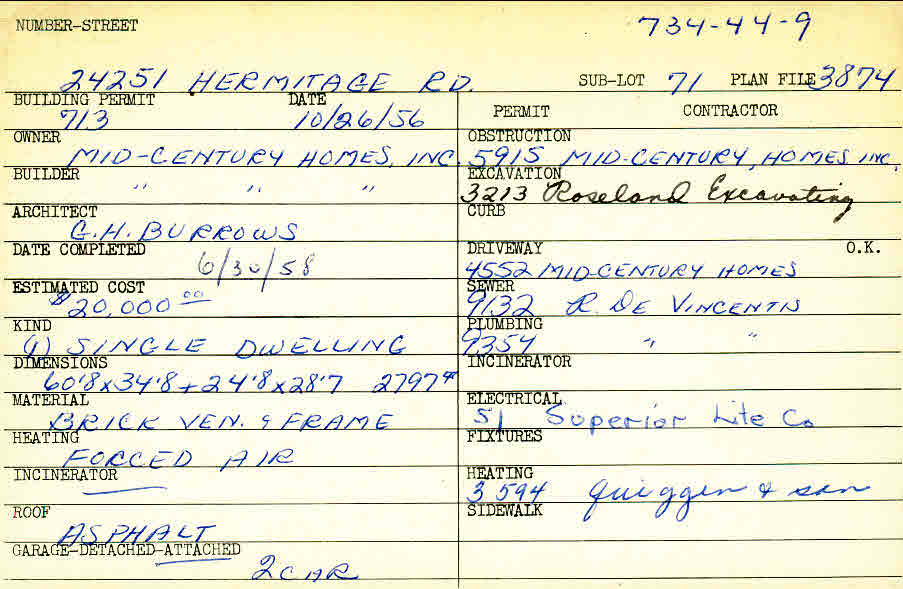 NUMBER-STREET 734-44-9
24251 HERMITAGE RD. SUB-LOT 71 PLAN FILE 3874
BUILDING PERMIT DATE PERMIT CONTRACTOR
713 10/26/56
OWNER OBSTRUCTION
MID-CENTURY HOMES, INC. 5915 MID-CENTURY, HOMES INC.
BUILDER EXCAVATION
" " " 3213 Roseland Excavating
ARCHITECT CURB
G.H. BURROWS
DATE COMPLETED DRIVEWAY O.K.
6/30/58 4552 MID-CENTURY HOMES
ESTIMATED COST SEWER
$20,000 00 9132 R. DE VINCENTIS
KIND PLUMBING
(1) SINGLE DWELLING 9354 " "
DIMENSIONS INCINERATOR
60'8 x 34'8 + 24'8 x 28'7 2797
MATERIAL ELECTRICAL
BRICK VEN. & FRAME 51 Superior Lite Co
HEATING FIXTURES
FORCED AIR
INCINERATOR HEATING
3594 Quiggen & son
ROOF SIDEWALK
ASPHALT
GARAGE-DETACHED-ATTACHED
2 CAR